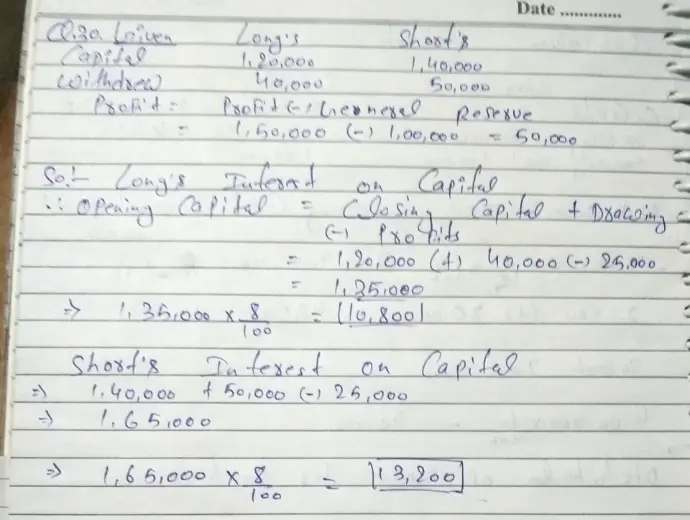 Date ............
Q.30 Given Long's Short's
Capital 1,20,000 1,40,000
Withdrew 40,000 50,000
Profit = Profit (-) Gerneral Reserve
= 1,50,000 (-) 1,00,000 = 50,000
So:- Long's Interest on Capital
∴ Opening Capital = Closing Capital + Drawing
(-) Profits
= 1,20,000 (+) 40,000 (-) 25,000
= 1,35,000
⇒ 1,35,000 × 8/100 = 10,800
Short's Interest on Capital
⇒ 1,40,000 + 50,000 (-) 25,000
⇒ 1,65,000
⇒ 1,65,000 × 8/100 = 13,200